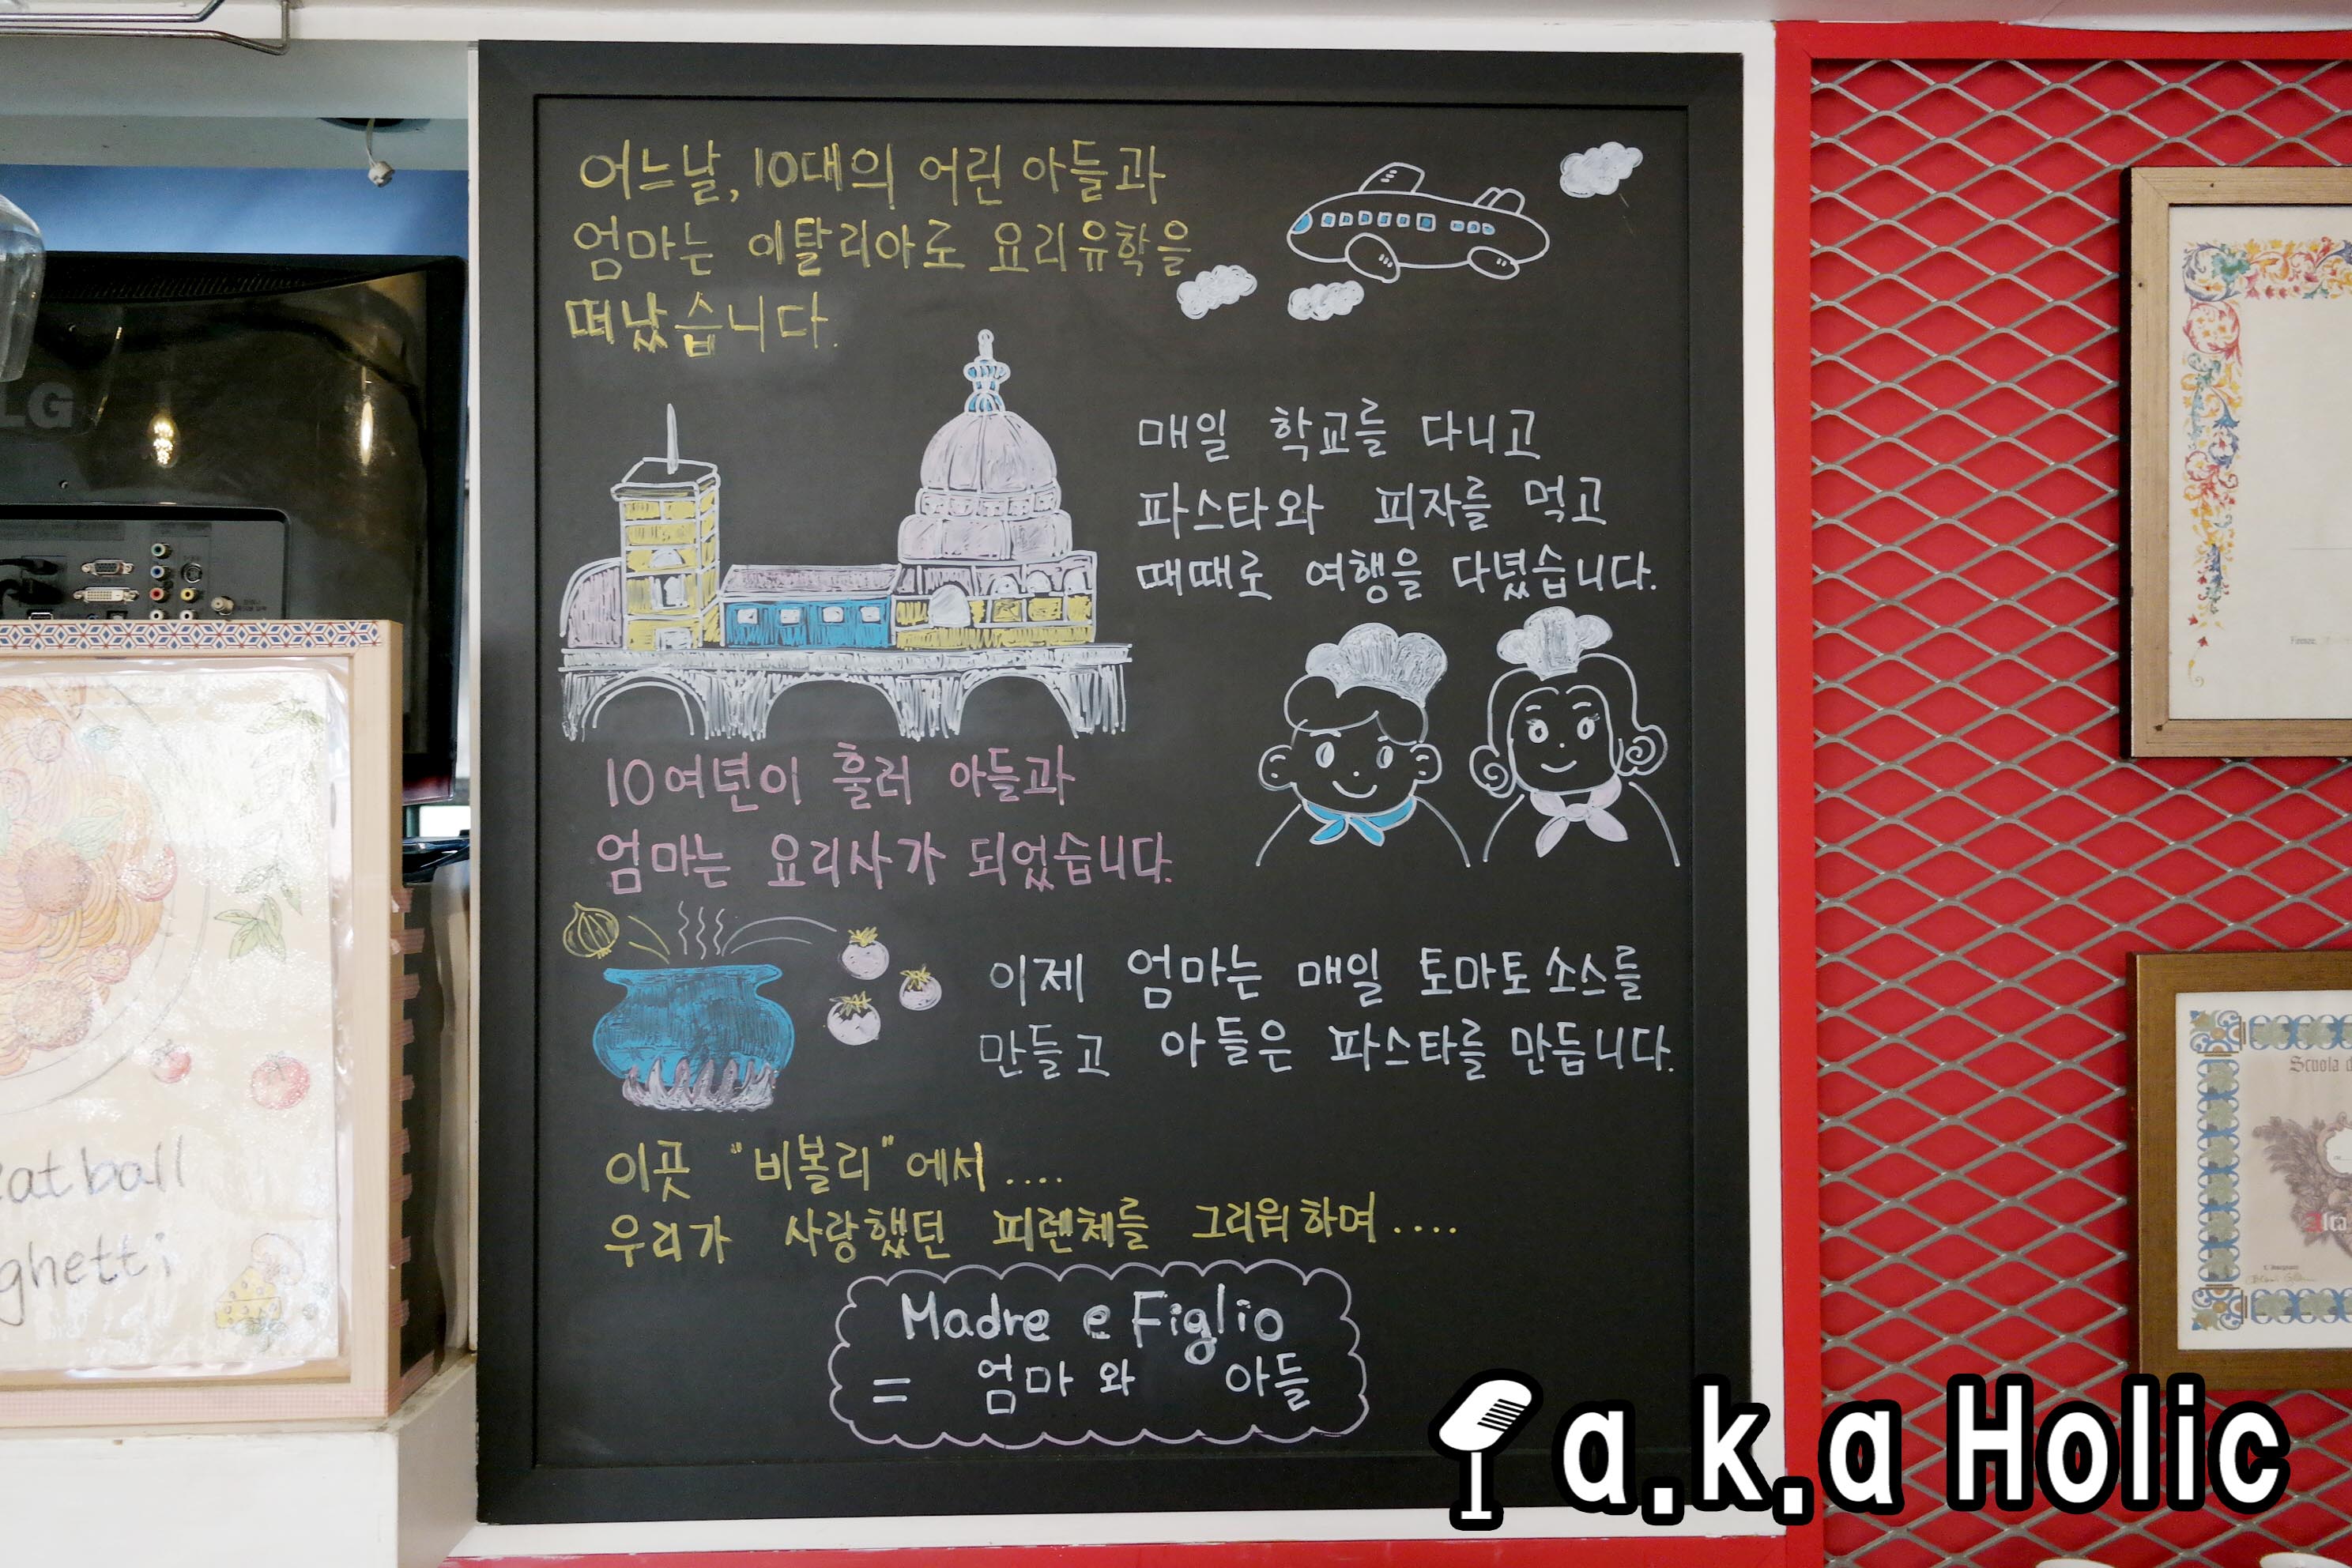 어느날, 10대의 어린 아들과
엄마는 이탈리아로 요리유학을
떠났습니다.
매일 학교를 다니고
파스타와 피자를 먹고
때때로 여행을 다녔습니다.
10여년이 흘러 아들과
엄마는 요리사가 되었습니다.
이제 엄마는 매일 토마토 소스를
만들고 아들은 파스타를 만듭니다.
이곳 "비볼리"에서....
우리가 사랑했던 피렌체를 그리워하며....
Madre e Figlio
= 엄마와 아들
LG
eatball
ghetti
Firenze,
Scuola d
a.k.a Holic